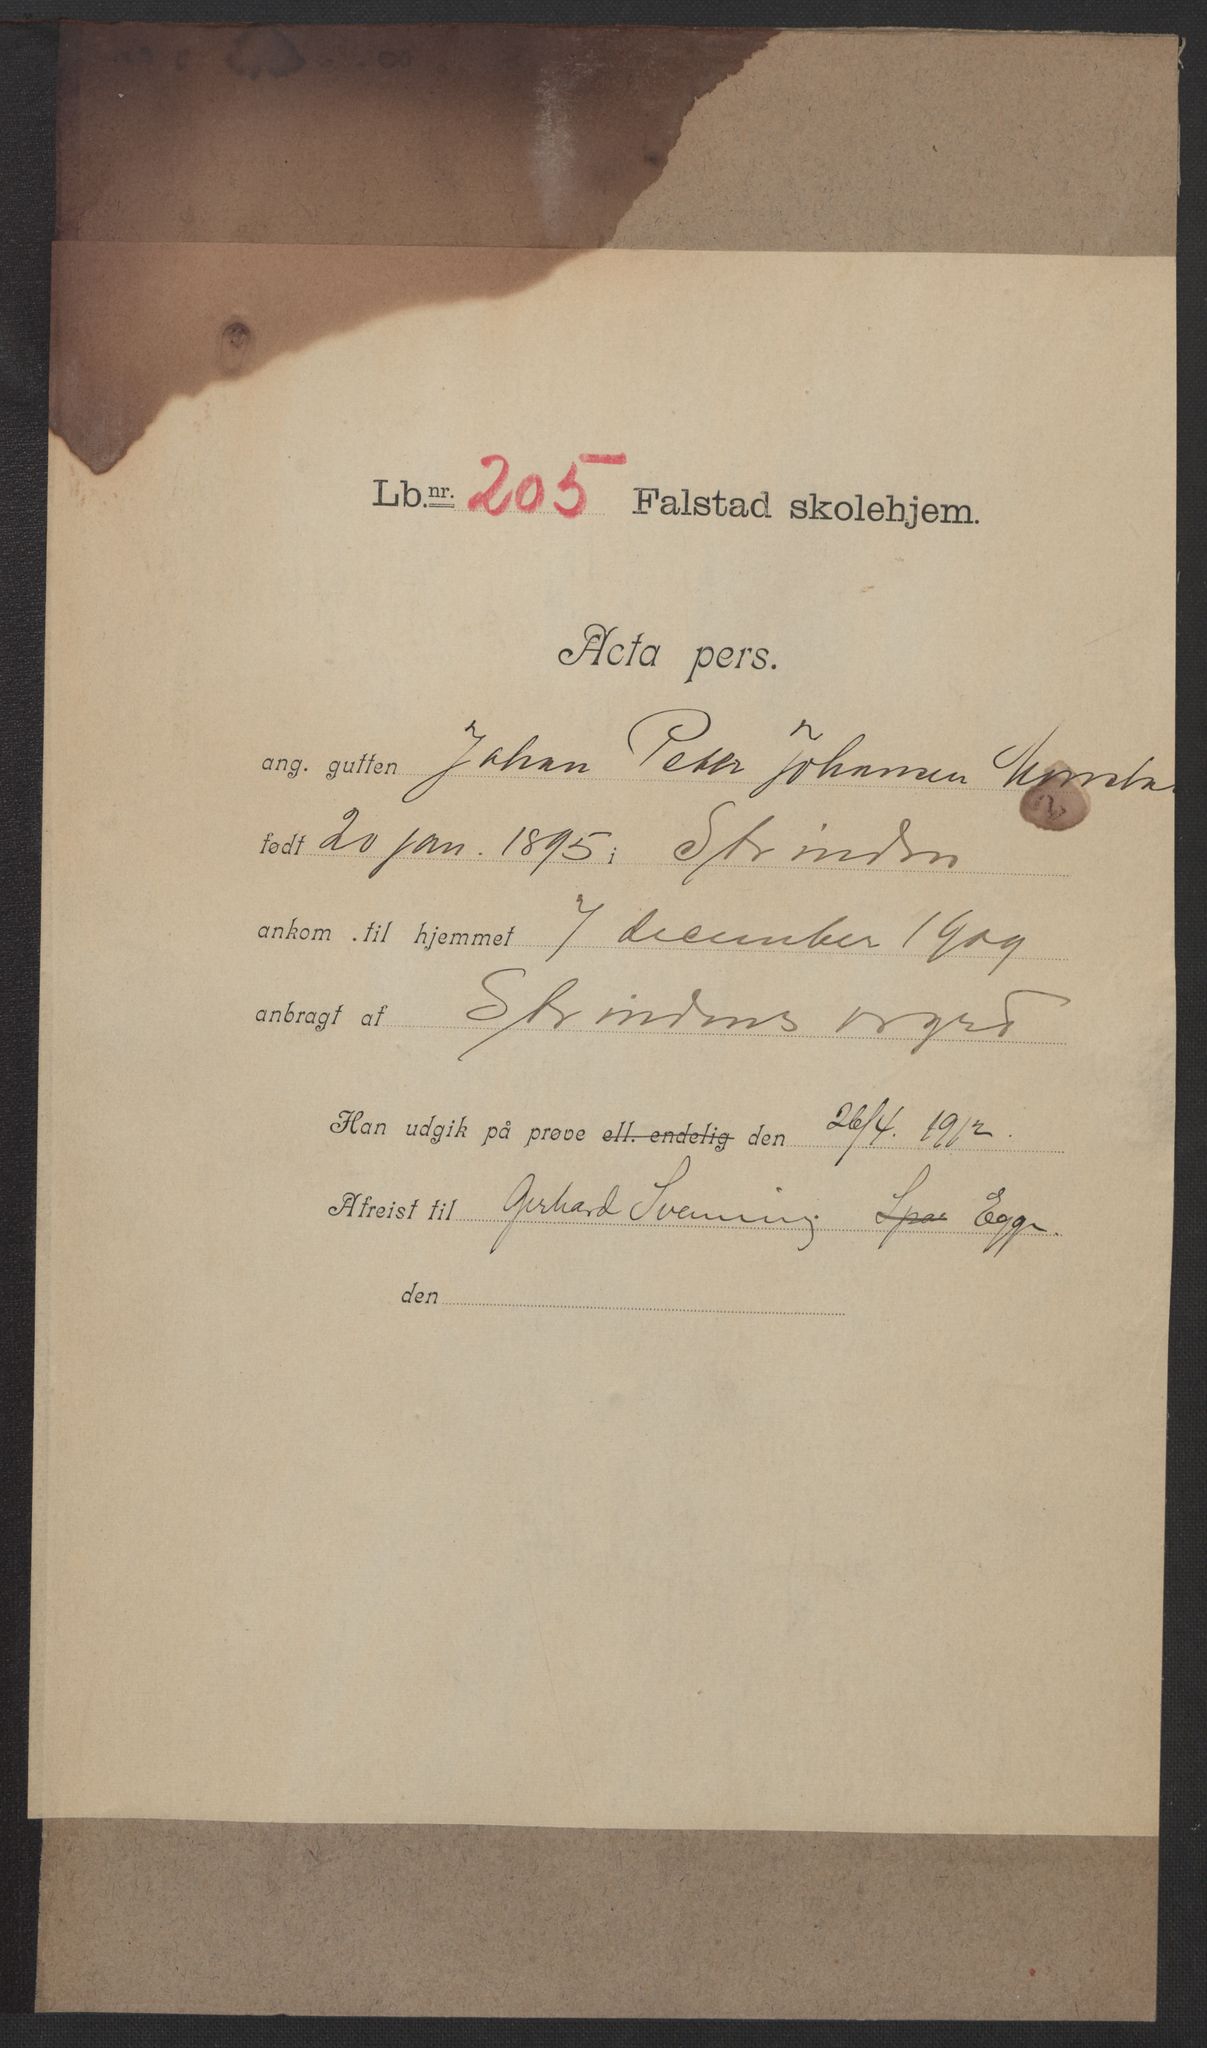 Lb.nr. 205 Falstad skolehjem.
Acta pers.
ang. gutten Johan Peter Johansen
født 20 jan. 1895 i Strinden
ankom til hjemmet 7 december 1909
anbragt af Strindens vrgrd
Han udgik på prøve ell. endelig den 26/4. 1912.
Afreist til Gerhard Svenning Egge.
den